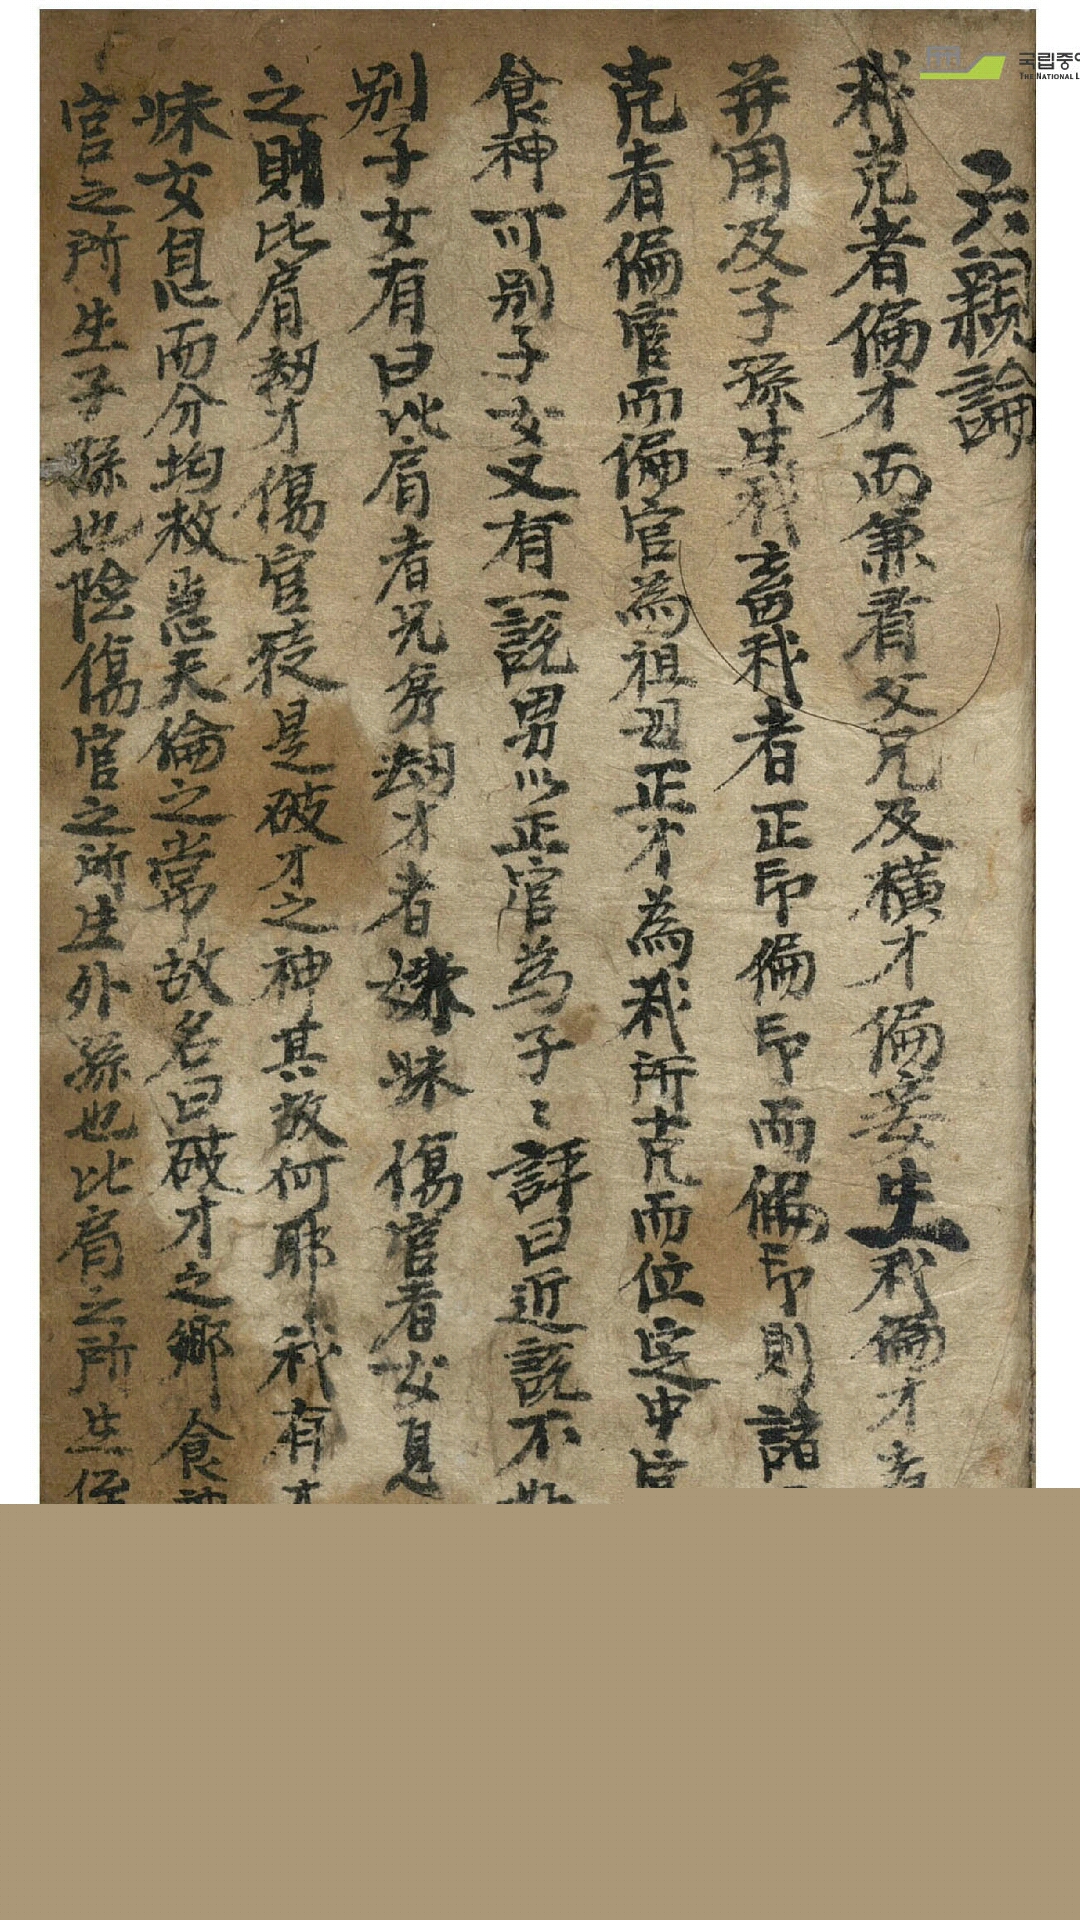 六親論
我克者偏才而兼看父兄及橫才偏妾生我偏才者
并用及子孫生我畜我者正印偏印而偏印則諸
克者偏官而偏官為祖丑正才為我所克而位定中
食神可別子女又有一說男以正官為子〻評曰近說不
別子女有曰比肩者兄弟劫才者嫌妹傷官者女息
之則比肩劫才傷官是破才之神其故何耶我有
妹女息而分均救惡天倫之常故名曰破才之鄉食神
官之所生子孫也陰傷官之所生外孫也比肩之所生侄
국립중
THE NATIONAL L